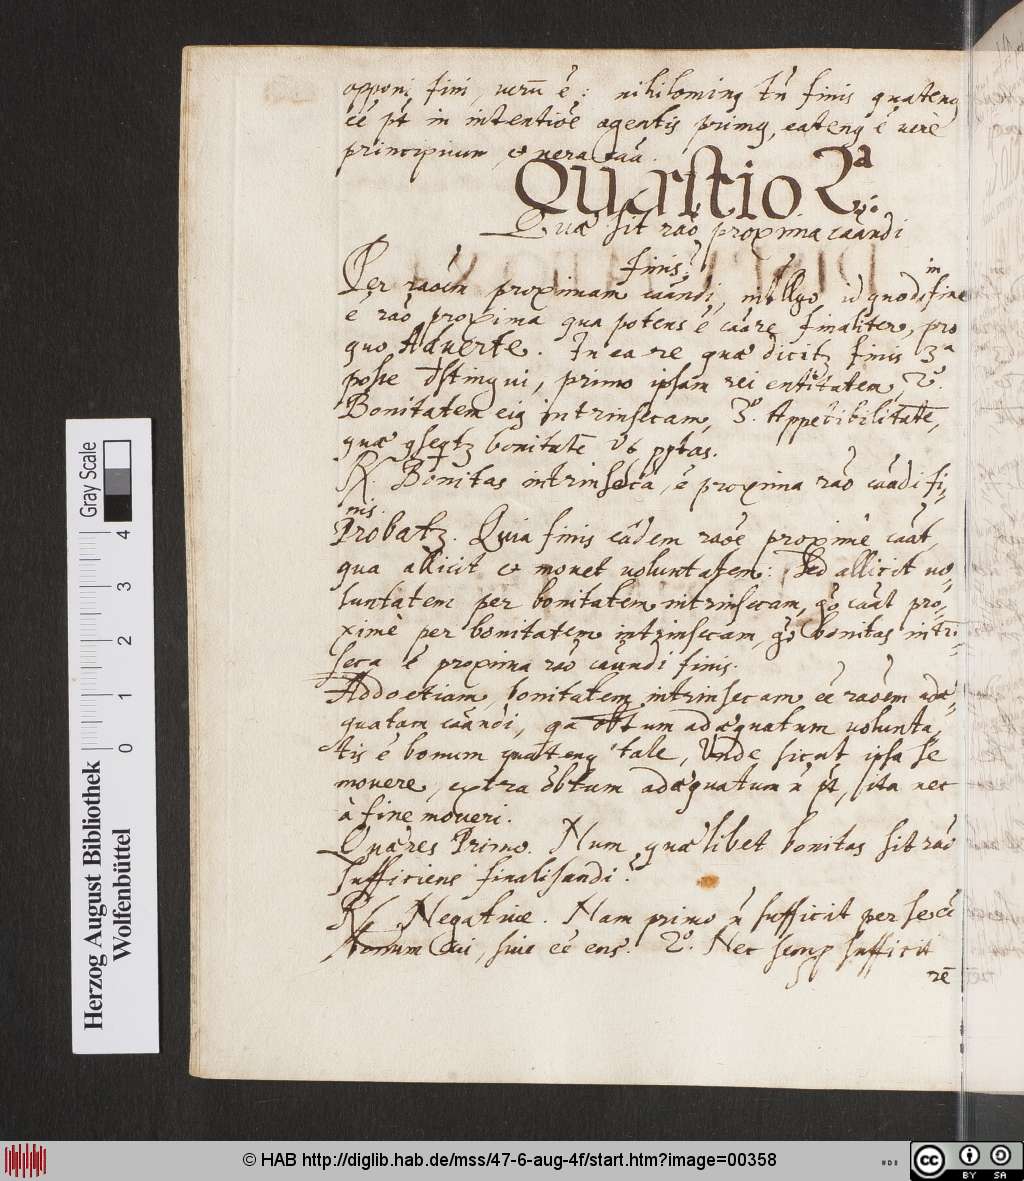 opponi fini, verū ē: nihilominq tn̄ finis quatenq
eē pt in intentiōe agentis primq, eatenq ē verè
principium et vera cāā.
Quæstio 2ª
Quæ sit rāō proxima cāāndi
finis?
Per rāōēm proximam cāāndi, intlligo id quod in fine
ē rāō proxima qua potens ē cāāre finaliter, pro
quo Adverte. In ea re quæ dicitʒ finis 3ª
posse dstingui, primo ipsam rei entitatem, 2°.
Bonitatem eiq intrinsecam, 3°. Appetibilitatē,
quæ gseqtʒ bonitatē
R/. Bonitas intrinseca, ē proxima rāō cāādi fi-
nis.
Probatʒ. Quia finis eādem rāōē proximè cāāt,
qua allicit et movet voluntatem: Sed allicit vo-
luntatem per bonitatem intrinsecam, gō cāāt pro-
ximè per bonitatem intrinsecam, gō bonitas intri-
seca ē proxima rāō cāāndi finis.
Addo etiam, bonitatem intrinsecam eē rāōēm adæ-
quatam cāāndi, qa obtum adæquatum volunta-
tis ē bonum quatenq tale, Unde sicut ipsa se
movere, extra obtum adæquatum n̄ pt, ita nec
à fine moveri.
Quæres Primo. Num quælibet bonitas sit rāō
sufficiens finalisandi?
R/. Negativè. Nam primo n̄ sufficit per se eē
bonum sive eē ens. 2°. Nec semp sufficit
rē
Gray Scale
4 3 2 1 0
Herzog August Bibliothek
Wolfenbüttel
© HAB http://diglib.hab.de/mss/47-6-aug-4f/start.htm?image=00358
cc BY SA